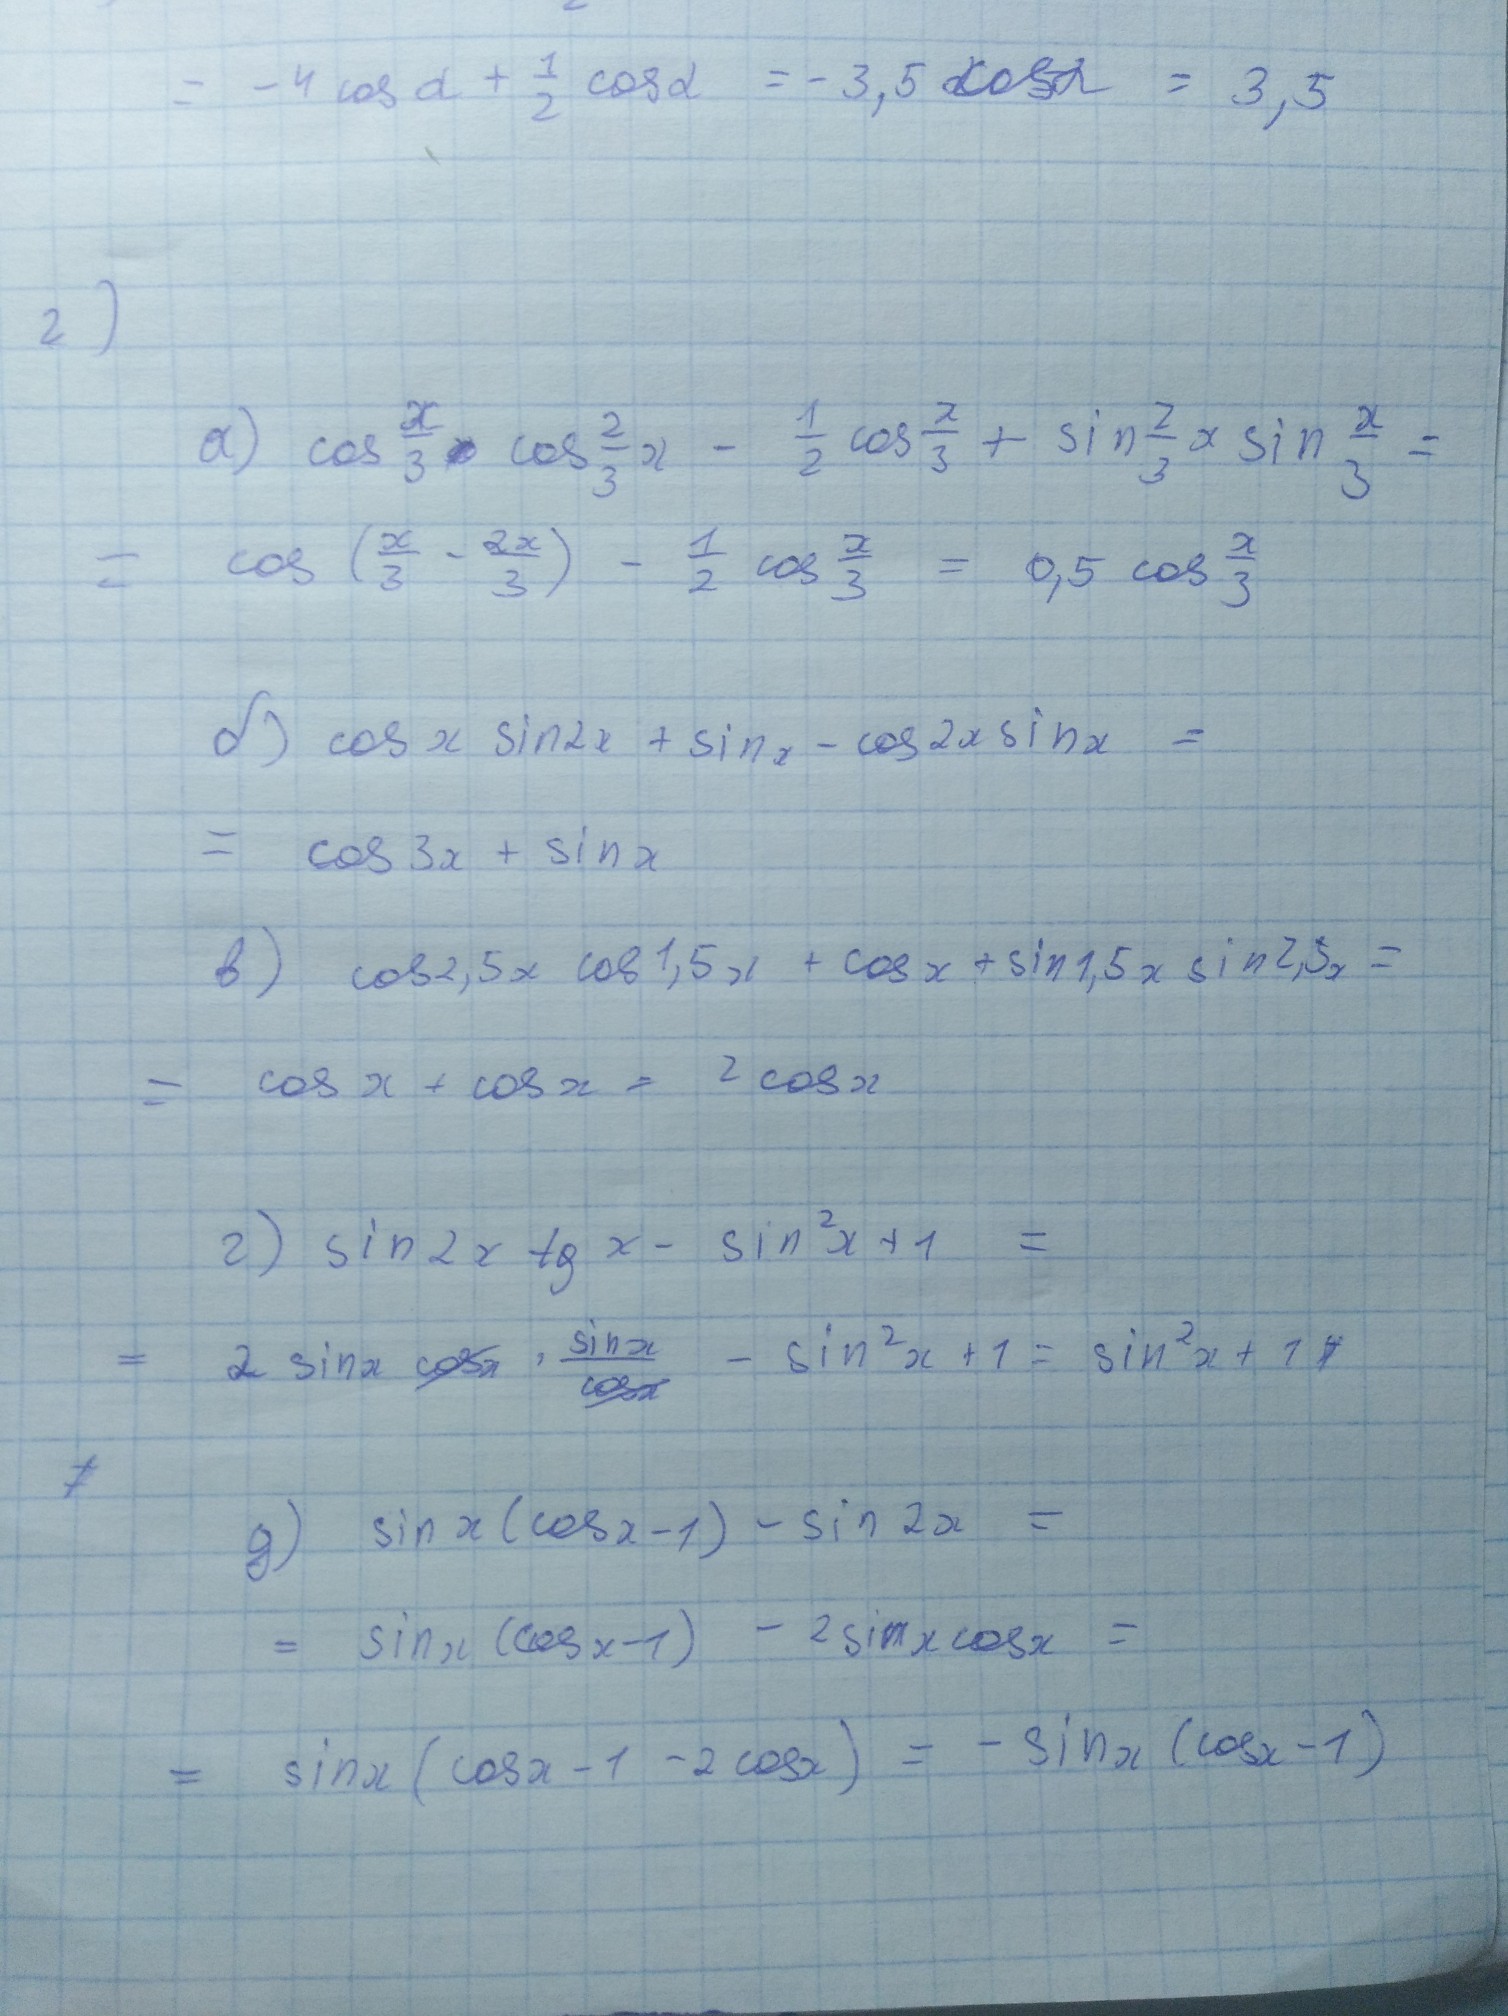 = -4 cos α + 1/2 cos α = -3,5 cos α = 3,5
2)
а) cos x/3 · cos 2/3 x - 1/2 cos x/3 + sin 2/3 x sin x/3 =
= cos (x/3 - 2x/3) - 1/2 cos x/3 = 0,5 cos x/3
б) cos x sin 2x + sin x - cos 2x sin x =
= cos 3x + sin x
в) cos 2,5x cos 1,5x + cos x + sin 1,5x sin 2,5x =
= cos x + cos x = 2 cos x
г) sin 2x tg x - sin² x + 1 =
= 2 sin x cos x · sin x / cos x - sin² x + 1 = sin² x + 1
д) sin x (cos x - 1) - sin 2x =
= sin x (cos x - 1) - 2 sin x cos x =
= sin x (cos x - 1 - 2 cos x) = - sin x (cos x - 1)